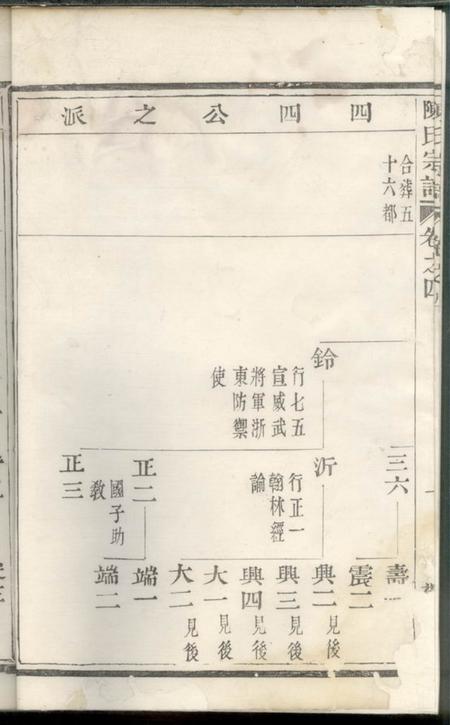 陳氏宗譜
卷之四
四四公之派
合葬五
十六都
三六
壽一
震二
鈴
行七五
宣威武
將軍浙
東防禦
使
沂
行正一
翰林經
諭
興二 見後
興三 見後
興四 見後
大一 見後
大二 見後
正二
國子助
教
端一
端二
正三